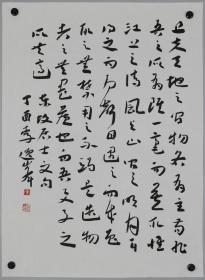 且夫天地之间物各有主苟非
吾之所有雖一毫而莫取惟
江上之清風與山间之明月耳
得之而为聲目遇之而成色
取之無禁用之不竭是造物
者之無盡藏也而吾與子之
所共適 东坡居士文句
丁酉季